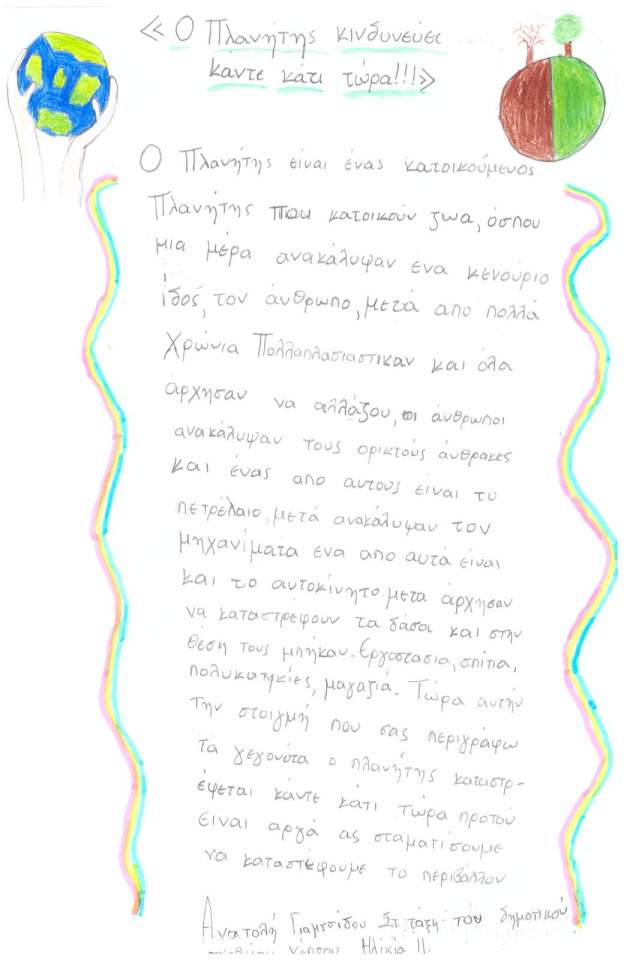 «Ο Πλανήτης κινδυνεύει
κάντε κάτι τώρα!!!»
Ο Πλανήτης είναι ένας κατοικούμενος
Πλανήτης που κατοικούν ζωα, όσπου
μια μέρα ανακάλυψαν ενα κενούριο
ίδος, τον άνθρωπο, μετά απο πολλά
Χρώνια Πολλαπλασιαστικαν και όλα
άρχησαν να αλλάζου, οι άνθρωποι
ανακάλυψαν τους ορικτούς άνθρακες
και ένας απο αυτους είναι το
πετρέλαιο, μετά ανακάλυψαν τον
μηχανίματα ενα απο αυτά είναι
και το αυτοκίνητο μετα άρχησαν
να καταστρέφουν τα δάσοι και στην
θέση τους μπήκαν. Εργοστασια, σπίπα,
πολυκατηκίες, μαγαζιά. Τώρα αυτήν
την στοιγμή που σας περιγράφω
τα γεγονότα ο πλανήτης καταστρ-
έφεται κάντε κάτι τώρα προτού
είναι αργά ας σταματίσουμε
να καταστέφουμε το περιβάλλον
Ανατολή Γιαμτσίδου Στ τάξη του δημοτικού
Ηλικία 11.